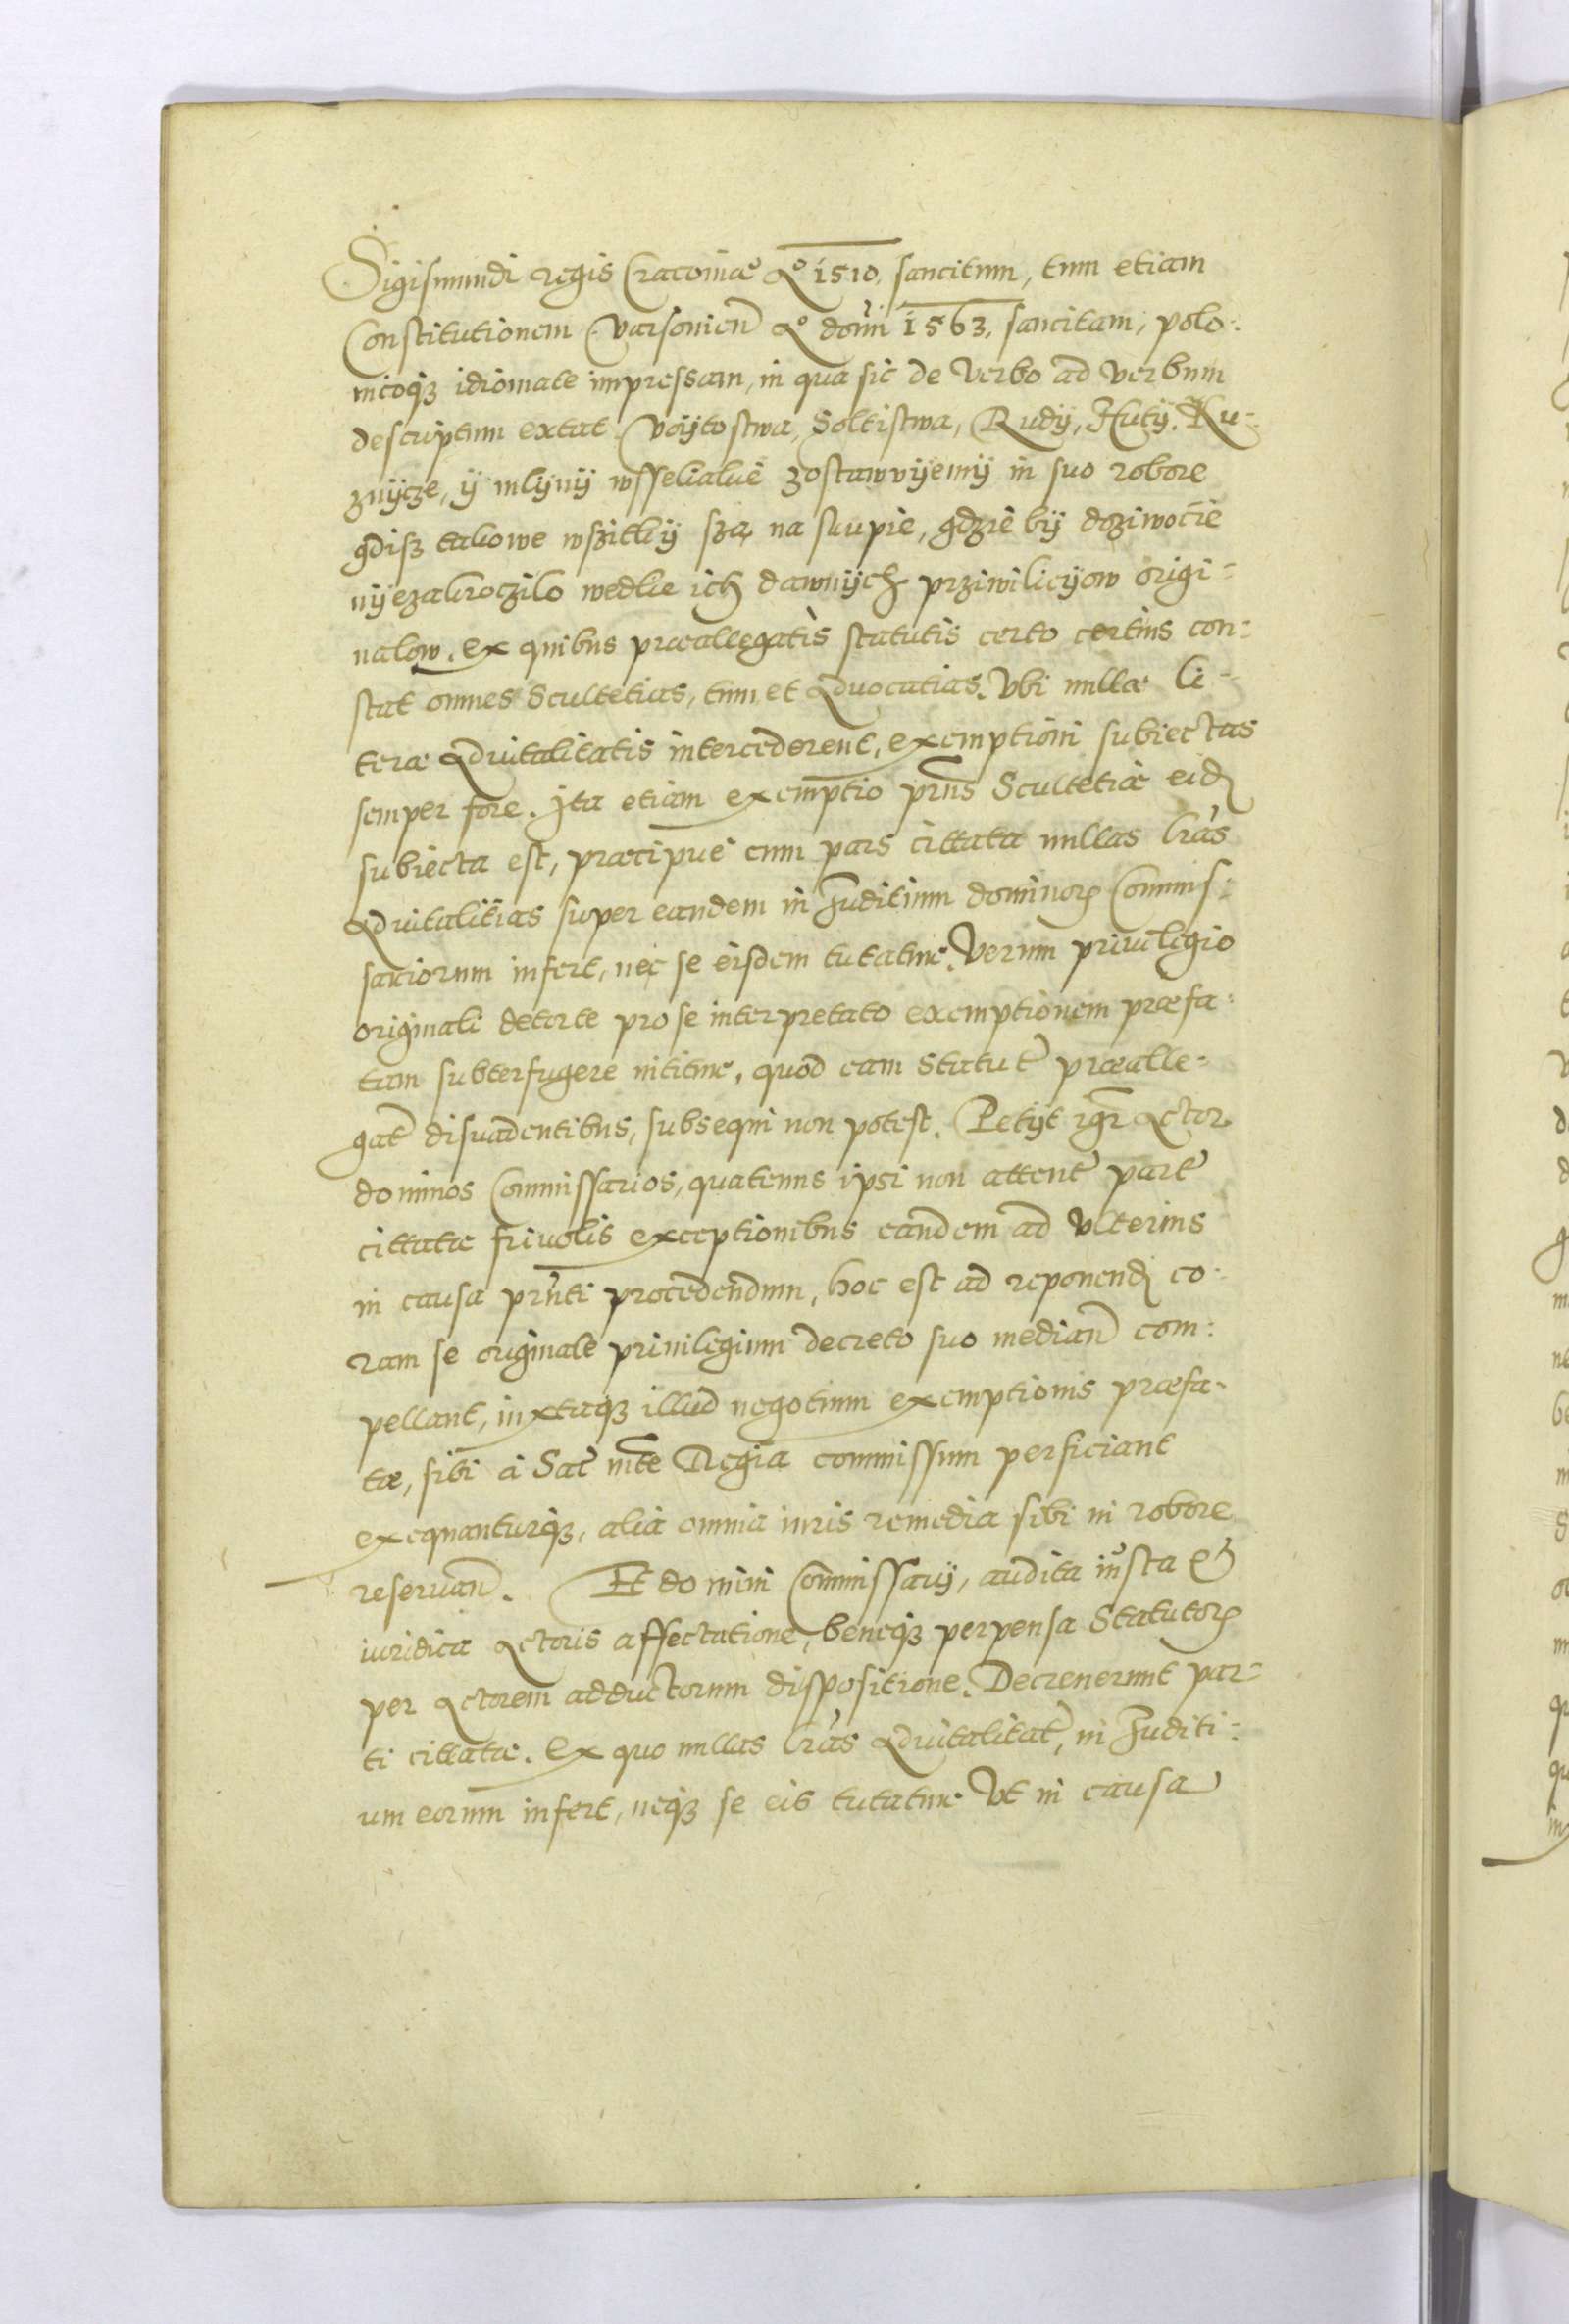 Sigismundi regis Cracoviæ Aº 1510. sancitum, tum etiam
Constitutionem Varsovien̄ Aº dom̄i 1563. sancitam, polo-
nicoqꝫ idiomate impressam, in qua sic de verbo ad verbum
descriptum extat. Voÿtostwa, Soltistwa, Rudÿ, Hutÿ, Ku-
znÿcze, ÿ mlÿnÿ wsselialuē zostawvÿemÿ in suo robore
gdisz takowe wszitkÿ szą na skupie, gdzie bÿ doziwocie
nÿezakroczilo wedlie ich dawnÿch prziwilieÿow origi-
nalow. Ex quibus præallegatis statutis certo certius con-
stat omnes Scultetias, tum et Advocatias. Vbi nullæ li-
teræ Advitalitatis intercederent, exemptioni subiectas
semper fore. Ita etiam exemptio prn̄s Scultetiæ eidꝫ
subiecta est, præcipuè cum pars cittata nullas lrās
Advitalitias super eandem in Juditium dominoꝝ Commis-
sariorum infert, nec se eisdem tutatur. Verum privilegio
originali detorte pro se interpretato exemptionem præfa-
tam subterfugere nititur, quod eam Statut̄ præalle-
gat̄ disuadentibus, subsequi non potest. Petÿt igr̄ Actor
dominos Commissarios, quatenus ipsi non attent̄ part̄
cittatæ frivolis exceptionibus eandem ad vlterius
in causa prn̄ti procedendum, hoc est ad reponendꝫ co-
ram se originale privilegium decreto suo median̄ com-
pellant, iuxtaqꝫ illud negotium exemptionis præfa-
tæ, sibi à Sac̄ mt̄e Regia commissum perficiant
exequanturqꝫ, alia omnia iuris remedia sibi in robore
reservan̄. Et domini Commissarÿ, audita iusta et
iuridica Actoris affectatione, beneqꝫ perpensa Statutoꝝ
per Actorem adductorum dispositione. Decreverunt par-
ti cittatæ. Ex quo nullas lrās Advitalitat̄, in Juditi-
um eorum infert, neqꝫ se eis tutatur Vt in causa